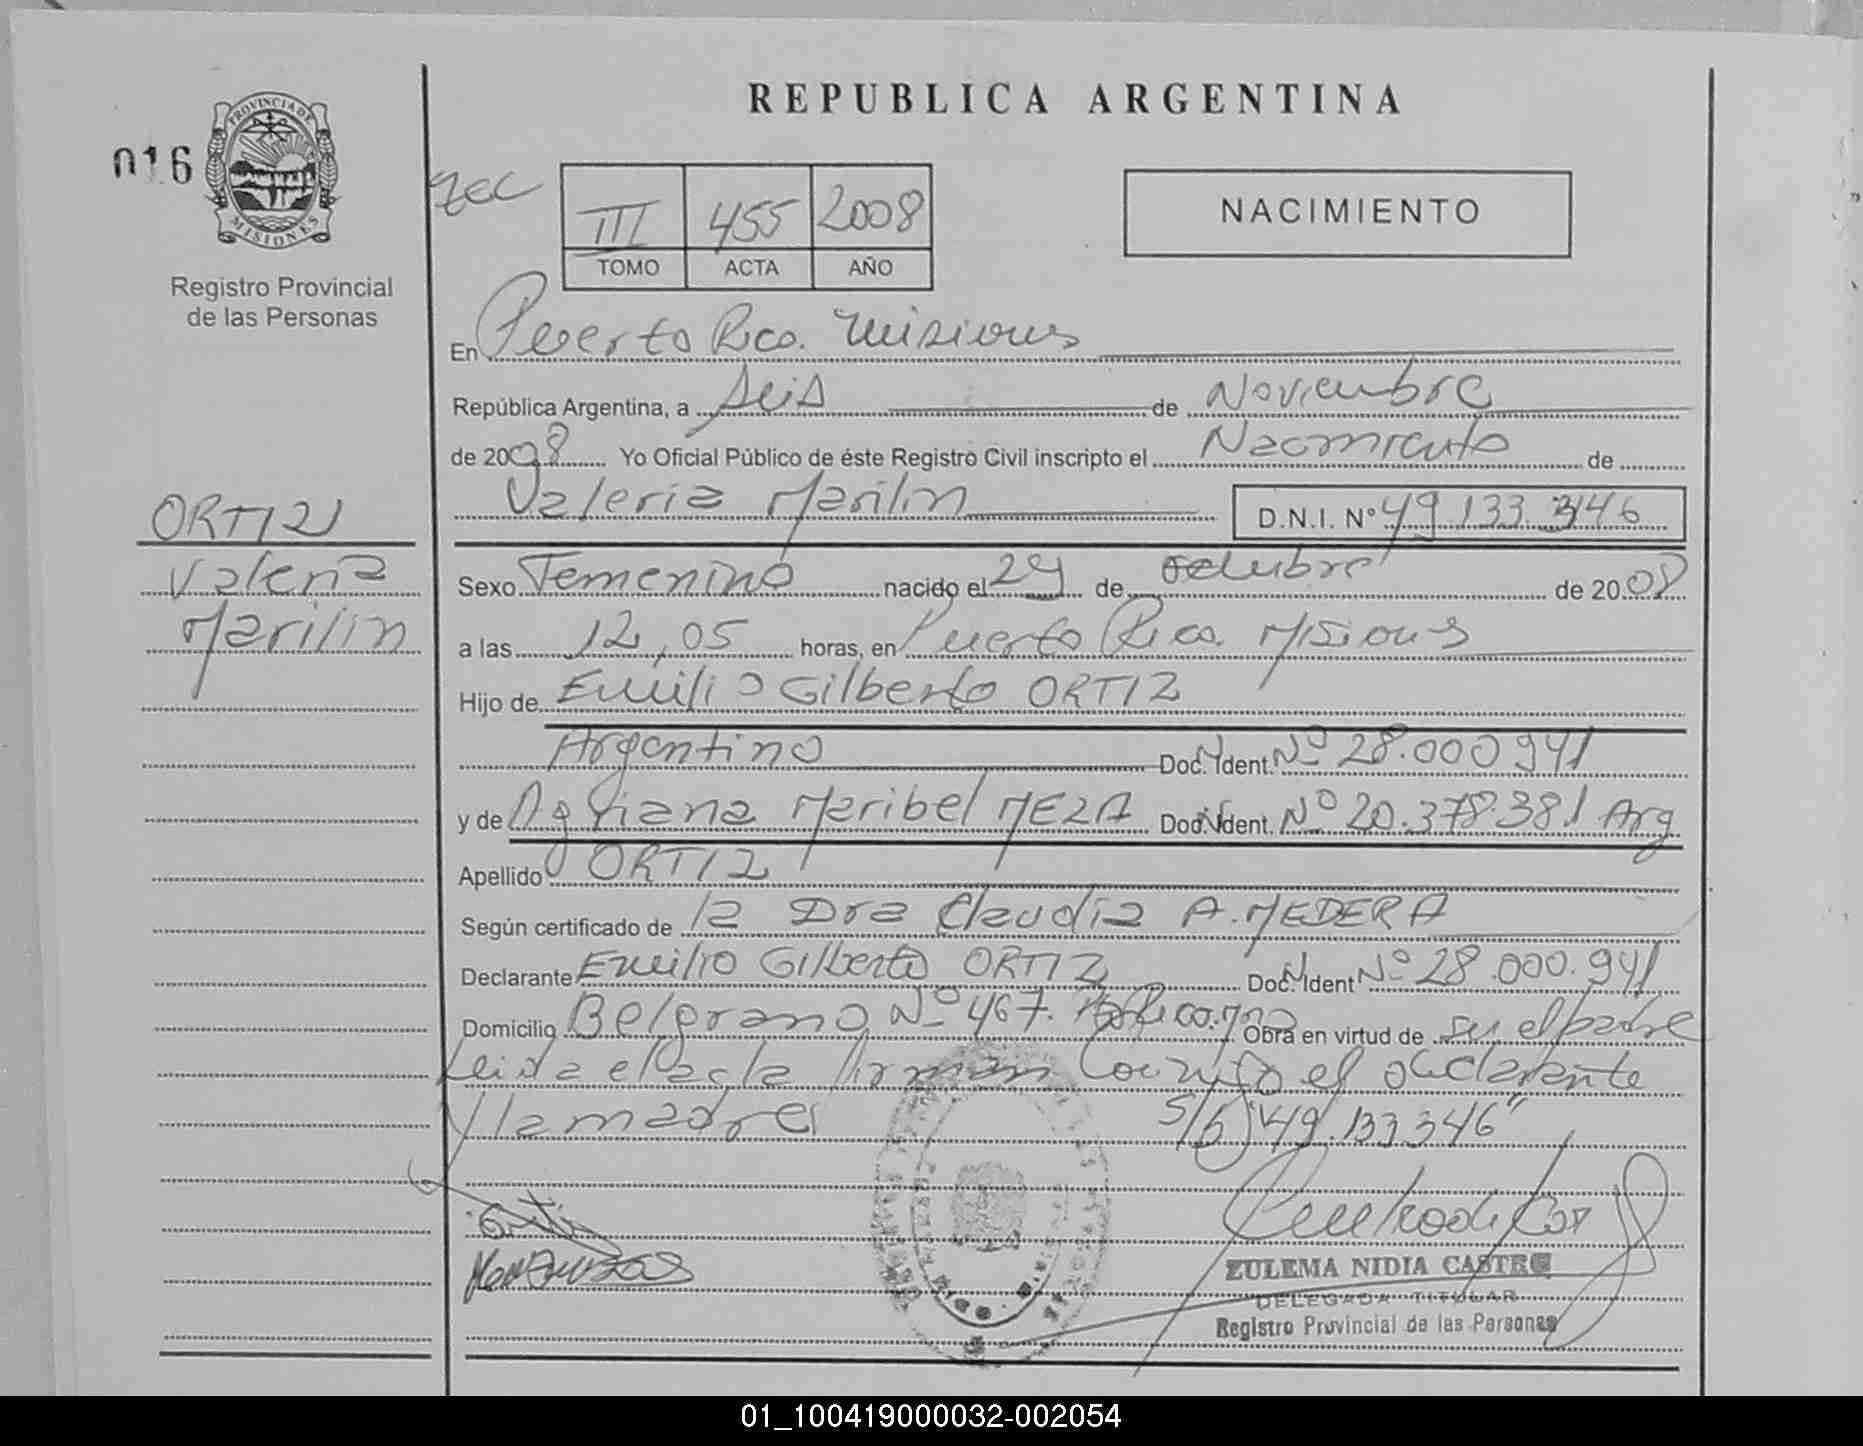 REPUBLICA ARGENTINA
016
PROVINCIA DE
MISIONES
Registro Provincial
de las Personas
III 455 2008
TOMO ACTA AÑO
NACIMIENTO
En Puerto Rico. Misiones
República Argentina, a Seis de Noviembre
de 2008 Yo Oficial Público de éste Registro Civil inscripto el Nacimiento de
Valeria Marilin D.N.I. Nº 49.133.346
ORTIZ
Valeria
Marilin
Sexo Femenino nacido el 29 de Octubre de 2008
a las 12,05 horas, en Puerto Rico. Misiones
Hijo de Emilio Gilberto ORTIZ
Argentino Doc. Ident. Nº 28.000.941
y de Maribel MEZA Doc. Ident. Nº 20.378.381 Arg
Apellido ORTIZ
Según certificado de la Dra Claudia A. MEDERA
Declarante Emilio Gilberto ORTIZ Doc. Ident Nº 28.000.941
Domicilio Belgrano Nº 467. Pto Rico. Obra en virtud de ser el padre
Leida el acta firman conmigo el declarante
y la madre S/b "49.133.346"
ZULEMA NIDIA CASTRO
DELEGADA TITULAR
Registro Provincial de las Personas
01_100419000032-002054